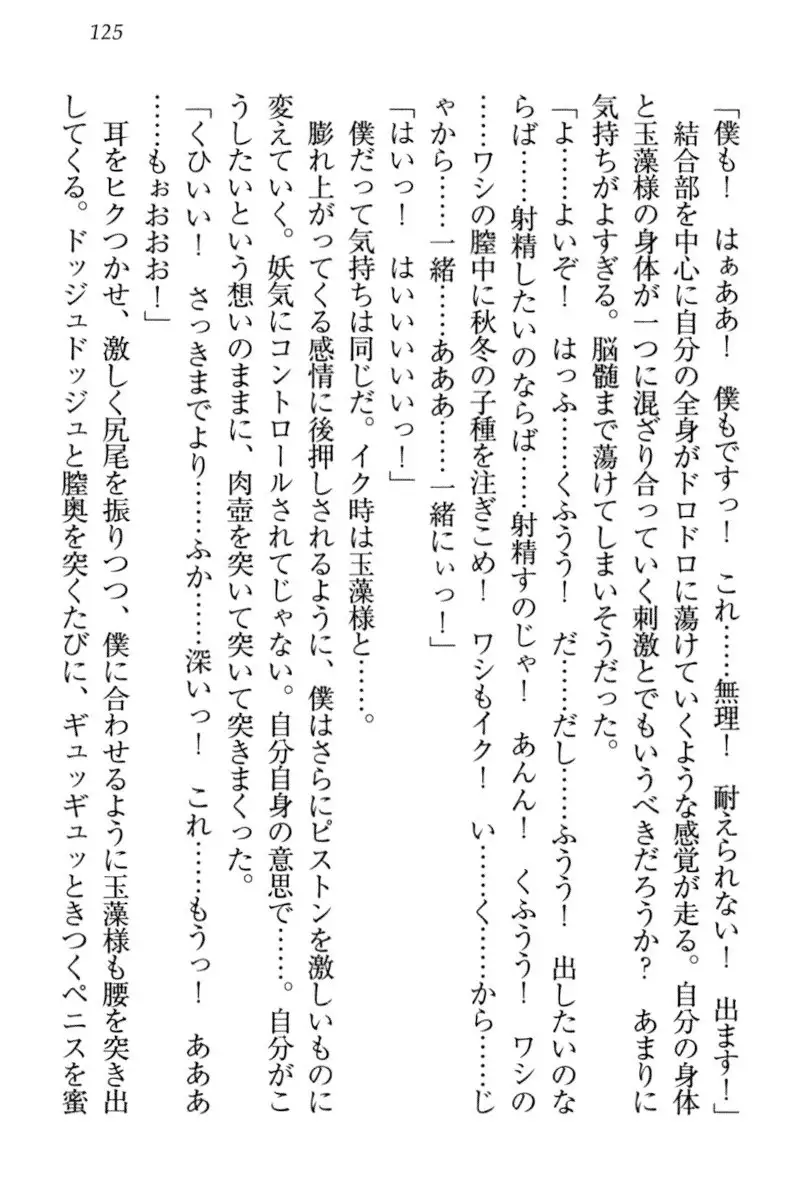 125
「僕も！　はぁああ！　僕もですっ！　これ……無理！　耐えられない！　出ます！」
　結合部を中心に自分の全身がドロドロに蕩けていくような感覚が走る。自分の身体
と玉藻様の身体が一つに混ざり合っていく刺激とでもいうべきだろうか？　あまりに
気持ちがよすぎる。脳髄まで蕩けてしまいそうだった。
「よ……よいぞ！　はっふ……くふうう！　だ……だし……ふうう！　出したいのな
らば……射精したいのならば……射精すのじゃ！　あんん！　くふうう！　ワシの
……ワシの膣中に秋冬の子種を注ぎこめ！　ワシもイク！　い……く……から……じ
ゃから……一緒……あああ……一緒にぃっ！」
「はいっ！　はいいいいいっ！」
　僕だって気持ちは同じだ。イク時は玉藻様と……。
　膨れ上がってくる感情に後押しされるように、僕はさらにピストンを激しいものに
変えていく。妖気にコントロールされてじゃない。自分自身の意思で……。自分がこ
うしたいという想いのままに、肉壺を突いて突いて突きまくった。
「くひいい！　さっきまでより……ふか……深いっ！　これ……もうっ！　あああ
……もぉおおお！」
　耳をヒクつかせ、激しく尻尾を振りつつ、僕に合わせるように玉藻様も腰を突き出
してくる。ドッジュドッジュと膣奥を突くたびに、ギュッギュッときつくペニスを蜜